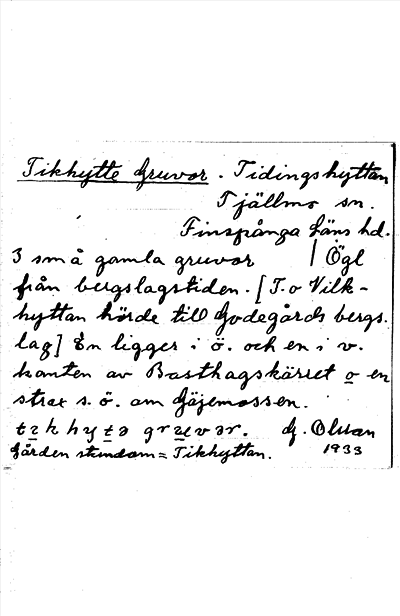 Tikhytte gruvor. Tidingshyttan
Tjällmo sn.
Finspånga läns hd.
3 små gamla gruvor / Ögl
från bergslagstiden. [T. o Vilk-
hyttan hörde till Godegårds bergs-
lag] En ligger i ö. och en i v.
kanten av Basthagskärret o en
strax s.ö. om Gäjemossen.
G. Olsson
Gården stundom = Tikhyttan. 1933